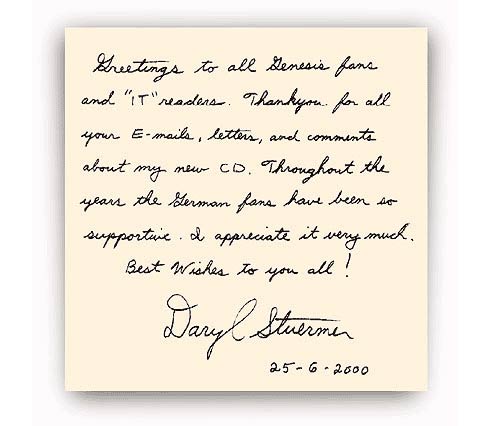 Greetings to all Genesis fans
and "IT" readers. Thankyou for all
your E-mails, letters, and comments
about my new CD. Throughout the
years the German fans have been so
supportive. I appreciate it very much.
Best Wishes to you all!
Daryl Stuermer
25-6-2000